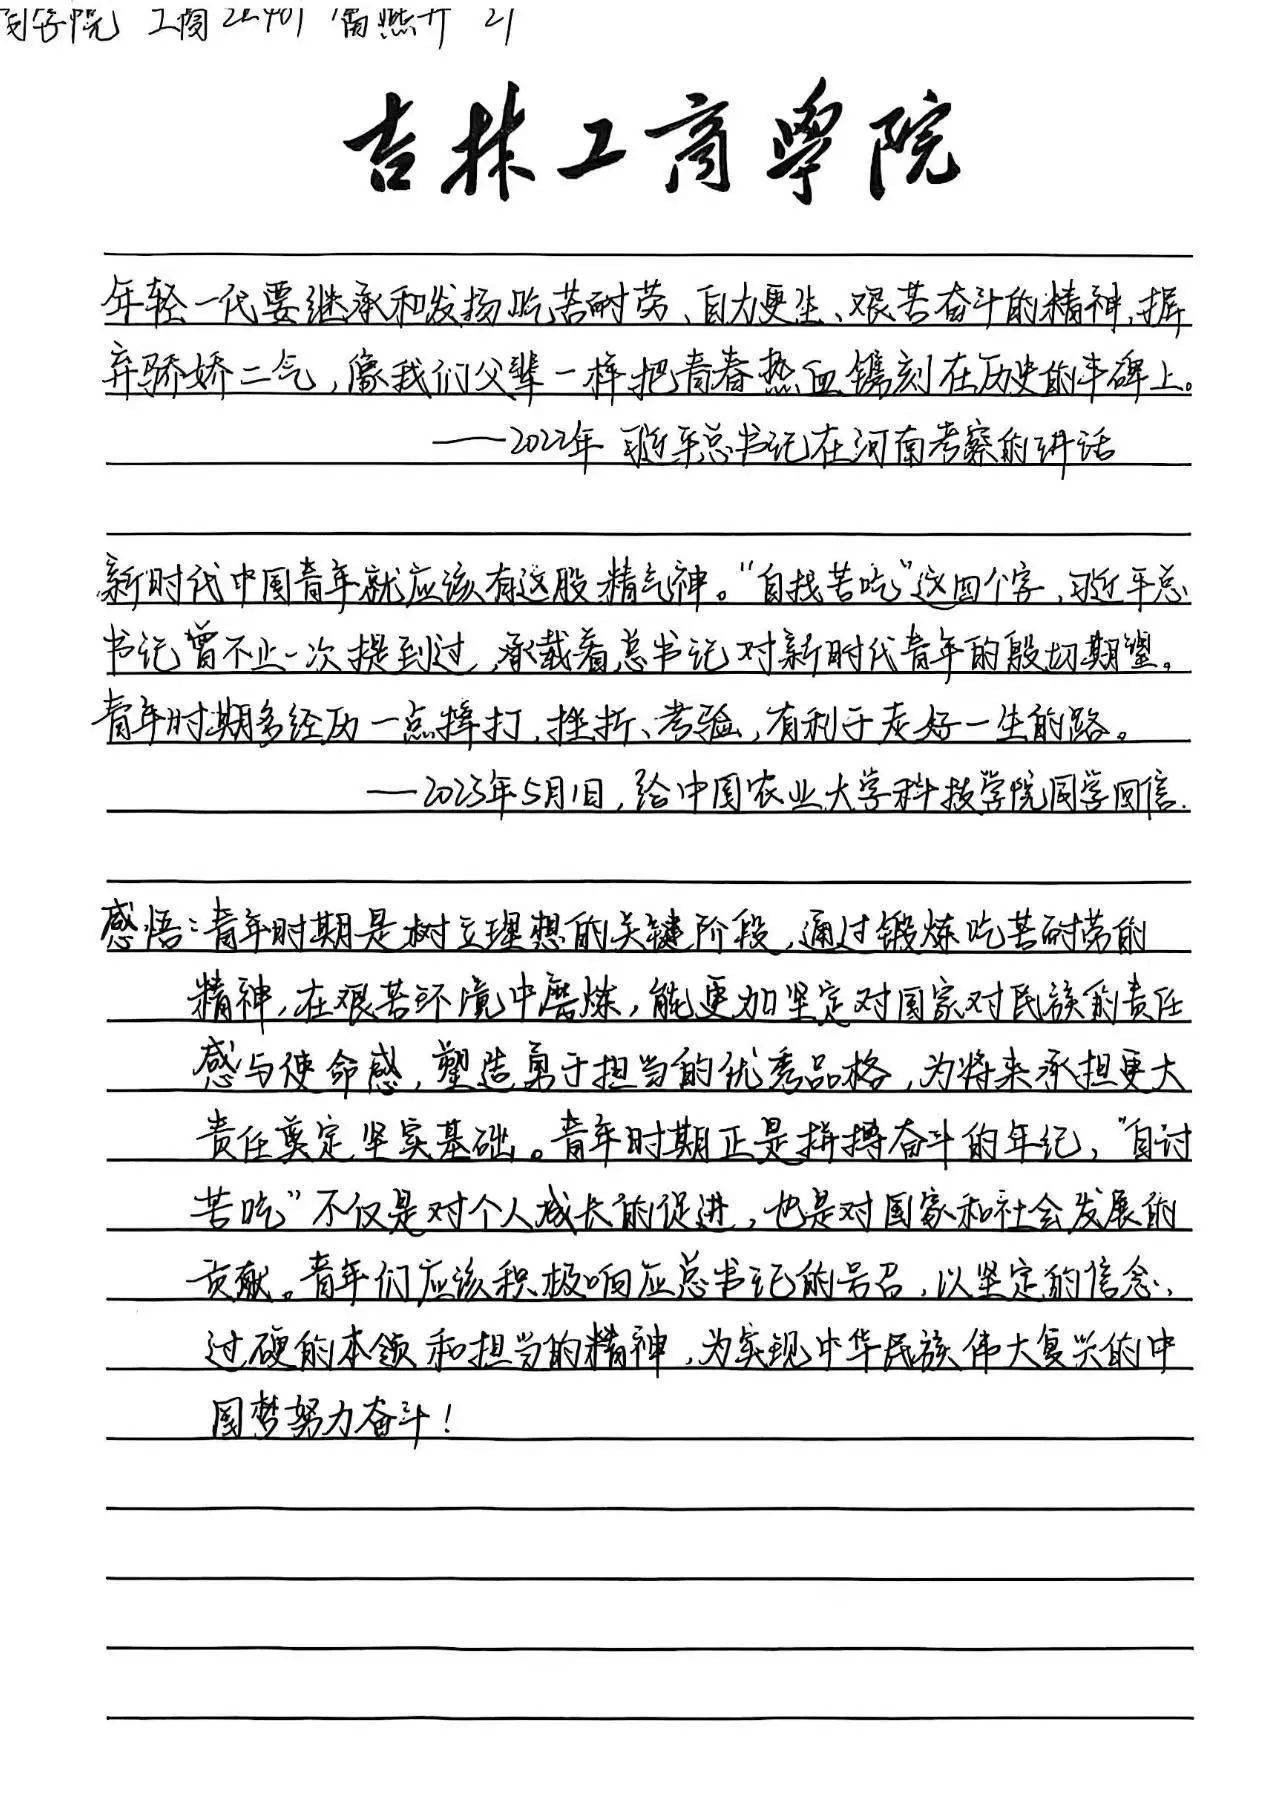 工商
吉林工商学院
年轻一代要继承和发扬吃苦耐劳、自力更生、艰苦奋斗的精神，摒
弃骄娇二气，像我们父辈一样把青春热血镌刻在历史的丰碑上。
——2022年 习近平总书记在河南考察的讲话
新时代中国青年就应该有这股精气神。“自找苦吃”这四个字，习近平总
书记曾不止一次提到过，承载着总书记对新时代青年的殷切期望。
青年时期多经历一点摔打、挫折、考验，有利于走好一生的路。
——2023年5月1日，给中国农业大学科技学院同学回信.
感悟：青年时期是树立理想的关键阶段，通过锻炼吃苦耐劳的
精神，在艰苦环境中磨炼，能更加坚定对国家对民族的责任
感与使命感，塑造勇于担当的优秀品格，为将来承担更大
责任奠定坚实基础。青年时期正是拼搏奋斗的年纪，“自讨
苦吃”不仅是对个人成长的促进，也是对国家和社会发展的
贡献。青年们应该积极响应总书记的号召，以坚定的信念、
过硬的本领和担当的精神，为实现中华民族伟大复兴的中
国梦努力奋斗！